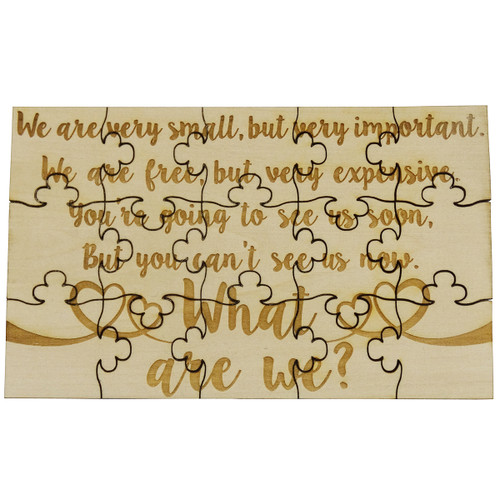 We are very small, but very important.
We are free, but very expensive.
You're going to see us soon,
But you can't see us now.
What
are we?